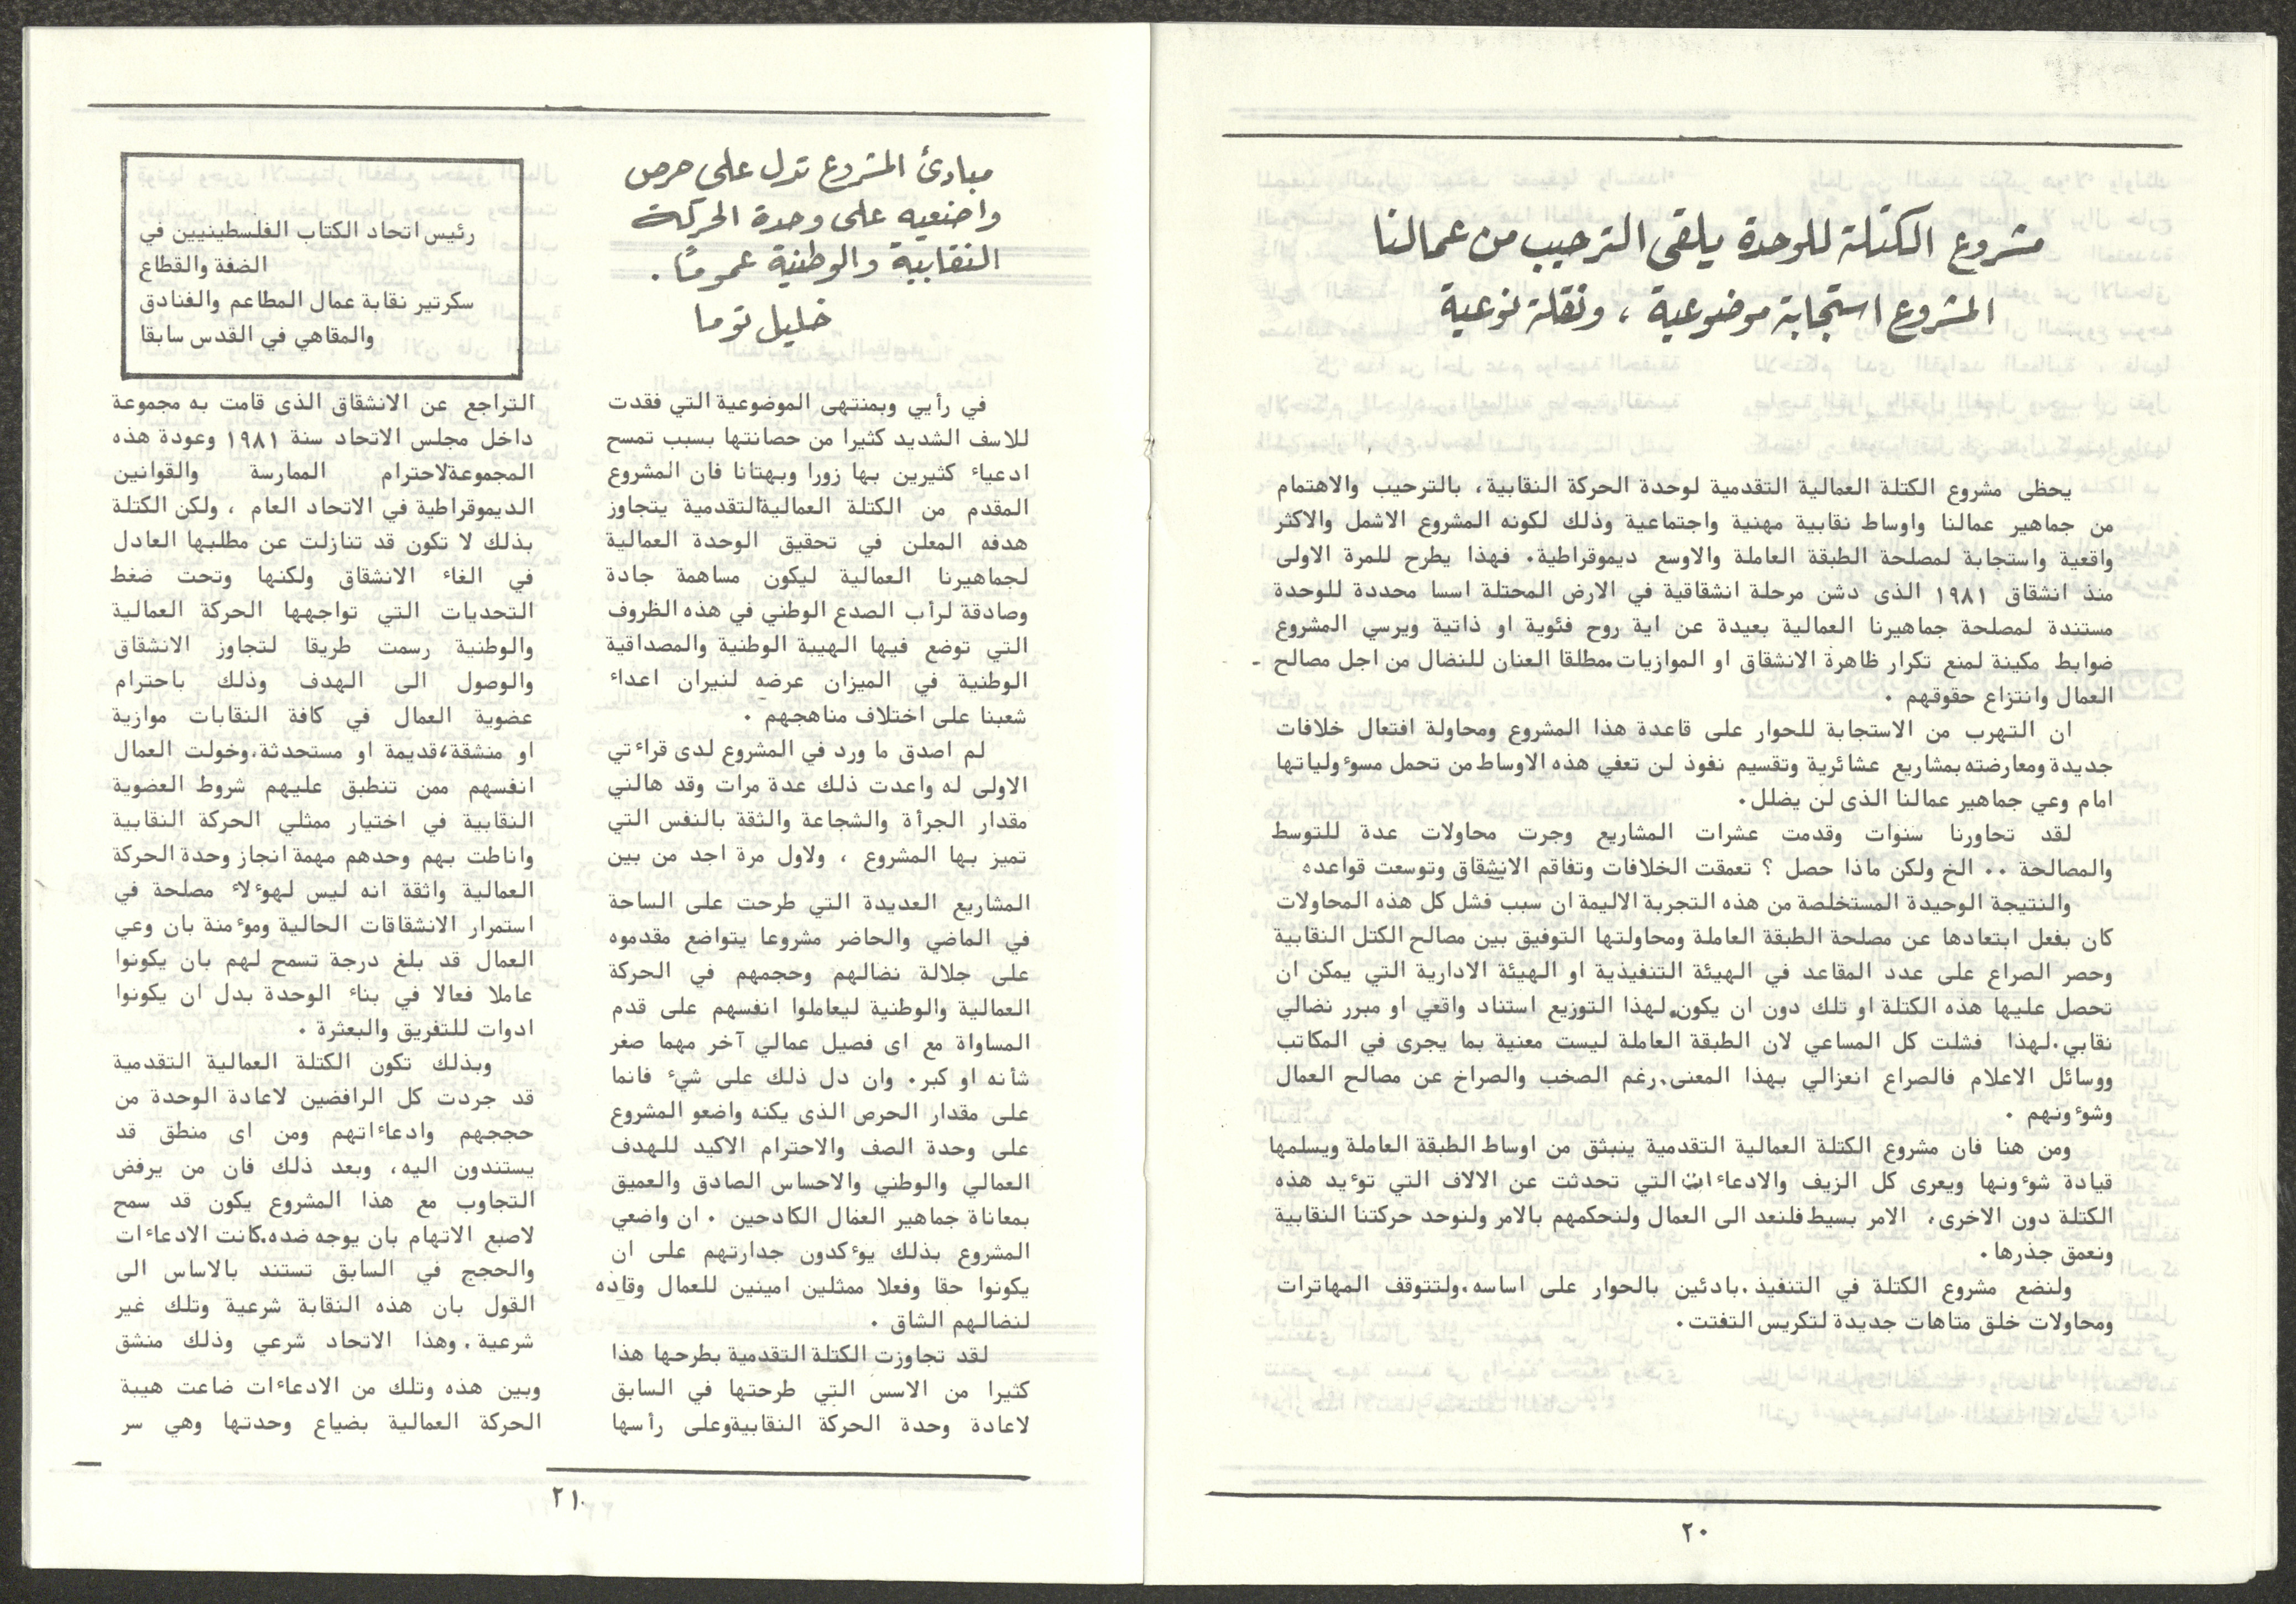 مشروع الكتلة للوحدة يلقى الترحيب من عمالنا
المشروع استجابة موضوعية ، ونقلة نوعية
يحظى مشروع الكتلة العمالية التقدمية لوحدة الحركة النقابية، بالترحيب والاهتمام
من جماهير عمالنا واوساط نقابية مهنية واجتماعية وذلك لكونه المشروع الاشمل والاكثر
واقعية واستجابة لمصلحة الطبقة العاملة والاوسع ديموقراطية. فهذا يطرح للمرة الاولى
منذ انشقاق ١٩٨١ الذى دشن مرحلة انشقاقية في الارض المحتلة اسسا محددة للوحدة
مستندة لمصلحة جماهيرنا العمالية بعيدة عن اية روح فئوية او ذاتية ويرسي المشروع
ضوابط مكينة لمنع تكرار ظاهرة الانشقاق او الموازيات.مطلقا العنان للنضال من اجل مصالح -
العمال وانتزاع حقوقهم .
ان التهرب من الاستجابة للحوار على قاعدة هذا المشروع ومحاولة افتعال خلافات
جديدة ومعارضته بمشاريع عشائرية وتقسيم نفوذ لن تعفي هذه الاوساط من تحمل مسوءولياتها
امام وعي جماهير عمالنا الذى لن يضلل.
لقد تحاورنا سنوات وقدمت عشرات المشاريع وجرت محاولات عدة للتوسط
والمصالحة .. الخ ولكن ماذا حصل ؟ تعمقت الخلافات وتفاقم الانشقاق وتوسعت قواعده
والنتيجة الوحيدة المستخلصة من هذه التجربة الاليمة ان سبب فشل كل هذه المحاولات
كان بفعل ابتعادها عن مصلحة الطبقة العاملة ومحاولتها التوفيق بين مصالح الكتل النقابية
وحصر الصراع على عدد المقاعد في الهيئة التنفيذية او الهيئة الادارية التي يمكن ان
تحصل عليها هذه الكتلة او تلك دون ان يكون لهذا التوزيع استناد واقعي او مبرر نضالي
نقابي.لهذا فشلت كل المساعي لان الطبقة العاملة ليست معنية بما يجرى في المكاتب
ووسائل الاعلام فالصراع انعزالي بهذا المعنى.رغم الصخب والصراخ عن مصالح العمال
وشوءونهم .
ومن هنا فان مشروع الكتلة العمالية التقدمية ينبثق من اوساط الطبقة العاملة ويسلمها
قيادة شوءونها ويعرى كل الزيف والادعاءات التي تحدثت عن الالاف التي توءيد هذه
الكتلة دون الاخرى، الامر بسيط فلنعد الى العمال ولنحكمهم بالامر ولنوحد حركتنا النقابية
ونعمق جذرها.
ولنضع مشروع الكتلة في التنفيذ .بادئين بالحوار على اساسه.ولتتوقف المهاترات
ومحاولات خلق متاهات جديدة لتكريس التفتت.
٢٠
مبادئ المشروع تدل على حرص
واضعيه على وحدة الحركة
النقابية والوطنية عموماً .
خليل توما
رئيس اتحاد الكتاب الفلسطينيين في
الضفة والقطاع
سكرتير نقابة عمال المطاعم والفنادق
والمقاهي في القدس سابقا
في رأيي وبمنتهى الموضوعية التي فقدت
للاسف الشديد كثيرا من حصانتها بسبب تمسح
ادعياء كثيرين بها زورا وبهتانا فان المشروع
المقدم من الكتلة العمالية التقدمية يتجاوز
هدفه المعلن في تحقيق الوحدة العمالية
لجماهيرنا العمالية ليكون مساهمة جادة
وصادقة لرأب الصدع الوطني في هذه الظروف
التي توضع فيها الهيبة الوطنية والمصداقية
الوطنية في الميزان عرضه لنيران اعداء
شعبنا على اختلاف مناهجهم .
لم اصدق ما ورد في المشروع لدى قراءتي
الاولى له واعدت ذلك عدة مرات وقد هالني
مقدار الجرأة والشجاعة والثقة بالنفس التي
تميز بها المشروع ، ولاول مرة اجد من بين
المشاريع العديدة التي طرحت على الساحة
في الماضي والحاضر مشروعا يتواضع مقدموه
على جلالة نضالهم وحجمهم في الحركة
العمالية والوطنية ليعاملوا انفسهم على قدم
المساواة مع اى فصيل عمالي آخر مهما صغر
شأنه او كبر. وان دل ذلك على شيء فانما
على مقدار الحرص الذى يكنه واضعو المشروع
على وحدة الصف والاحترام الاكيد للهدف
العمالي والوطني والاحساس الصادق والعميق
بمعاناة جماهير العمال الكادحين . ان واضعي
المشروع بذلك يوءكدون جدارتهم على ان
يكونوا حقا وفعلا ممثلين امينين للعمال وقاده
لنضالهم الشاق .
لقد تجاوزت الكتلة التقدمية بطرحها هذا
كثيرا من الاسس التي طرحتها في السابق
لاعادة وحدة الحركة النقابية وعلى رأسها
التراجع عن الانشقاق الذى قامت به مجموعة
داخل مجلس الاتحاد سنة ١٩٨١ وعودة هذه
المجموعة لاحترام الممارسة والقوانين
الديموقراطية في الاتحاد العام ، ولكن الكتلة
بذلك لا تكون قد تنازلت عن مطلبها العادل
في الغاء الانشقاق ولكنها وتحت ضغط
التحديات التي تواجهها الحركة العمالية
والوطنية رسمت طريقا لتجاوز الانشقاق
والوصول الى الهدف وذلك باحترام
عضوية العمال في كافة النقابات موازية
او منشقة،قديمة او مستحدثة.وخولت العمال
انفسهم ممن تنطبق عليهم شروط العضوية
النقابية في اختيار ممثلي الحركة النقابية
واناطت بهم وحدهم مهمة انجاز وحدة الحركة
العمالية واثقة انه ليس لهوءلاء مصلحة في
استمرار الانشقاقات الحالية وموءمنة بان وعي
العمال قد بلغ درجة تسمح لهم بان يكونوا
عاملا فعالا في بناء الوحدة بدل ان يكونوا
ادوات للتفريق والبعثرة .
وبذلك تكون الكتلة العمالية التقدمية
قد جردت كل الرافضين لاعادة الوحدة من
حججهم وادعاءاتهم ومن اى منطق قد
يستندون اليه، وبعد ذلك فان من يرفض
التجاوب مع هذا المشروع يكون قد سمح
لاصبع الاتهام بان يوجه ضده.كانت الادعاءات
والحجج في السابق تستند بالاساس الى
القول بان هذه النقابة شرعية وتلك غير
شرعية . وهذا الاتحاد شرعي وذلك منشق
وبين هذه وتلك من الادعاءات ضاعت هيبة
الحركة العمالية بضياع وحدتها وهي سر
٢١